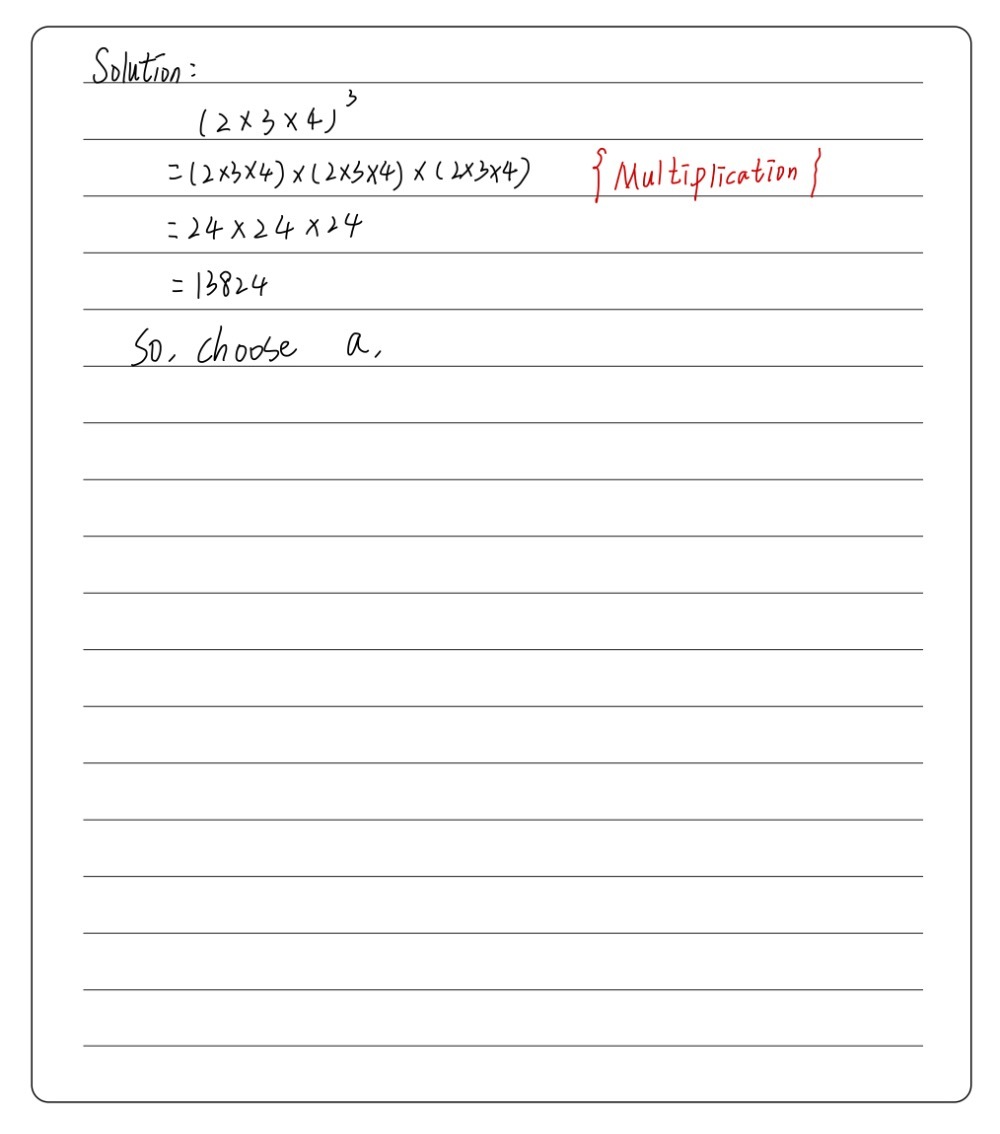 Solution:
(2×3×4)³
=(2×3×4)×(2×3×4)×(2×3×4) {Multiplication}
=24×24×24
=13824
So, choose a,